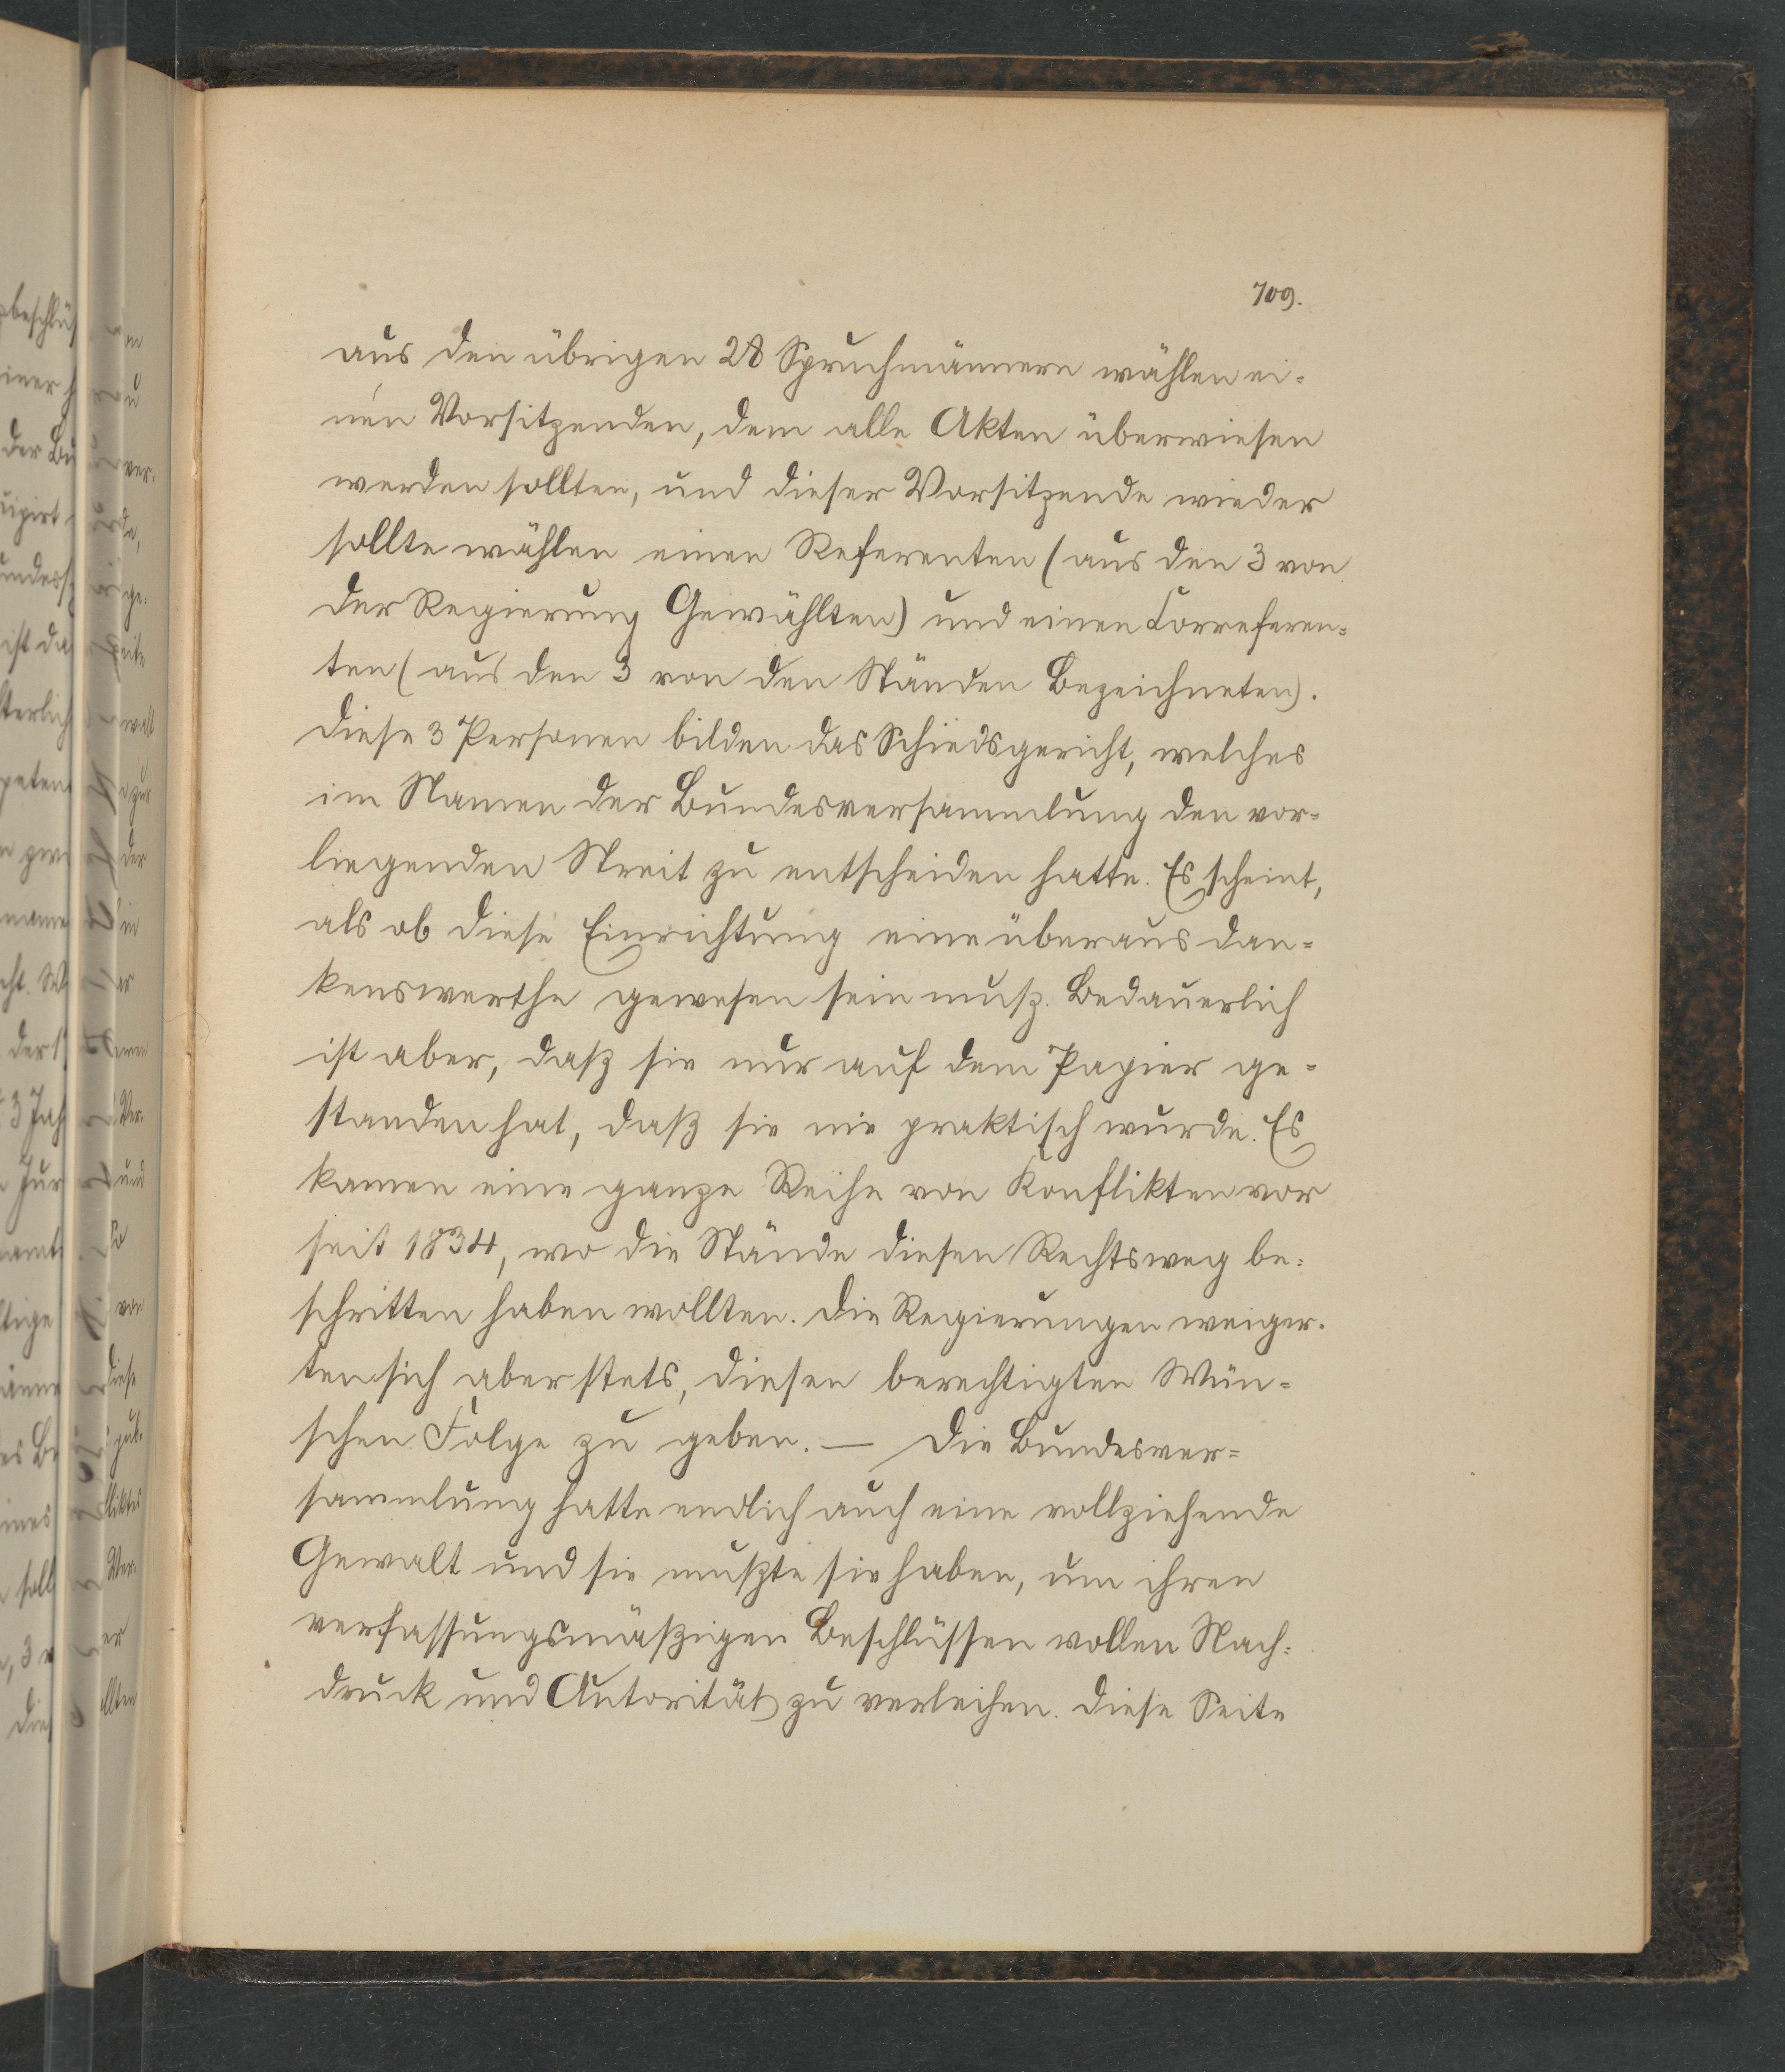 709.
aus den übrigen 28 Spruchmännern wählen ei-
nen Vorsitzenden, dem alle Akten überwiesen
werden sollten, und dieser Vorsitzende wieder
sollte wählen einen Referenten (aus den 3 von
der Regierung Gewählten) und einen Correferen-
ten (aus den 3 von den Ständen Bezeichneten).
Diese 3 Personen bilden das Schiedsgericht, welches
im Namen der Bundesversammlung den vor-
liegenden Streit zu entscheiden hatte. Es scheint,
als ob diese Einrichtung eine überaus dan-
kenswerthe gewesen sein muß. Bedauerlich
ist aber, daß sie nur auf dem Papier ge-
standen hat, daß sie nie praktisch wurde. Es
kamen eine ganze Reihe von Konflikten vor
seit 1834, wo die Stände diesen Rechtsweg be-
schritten haben wollten. Die Regierungen weiger-
ten sich aber stets, diesen berechtigten Wün-
schen Folge zu geben. — Die Bundesver-
sammlung hatte endlich auch eine vollziehende
Gewalt und sie mußte sie haben, um ihren
verfassungsmäßigen Beschlüssen vollen Nach-
druck und Autorität zu verleihen. Diese Seite